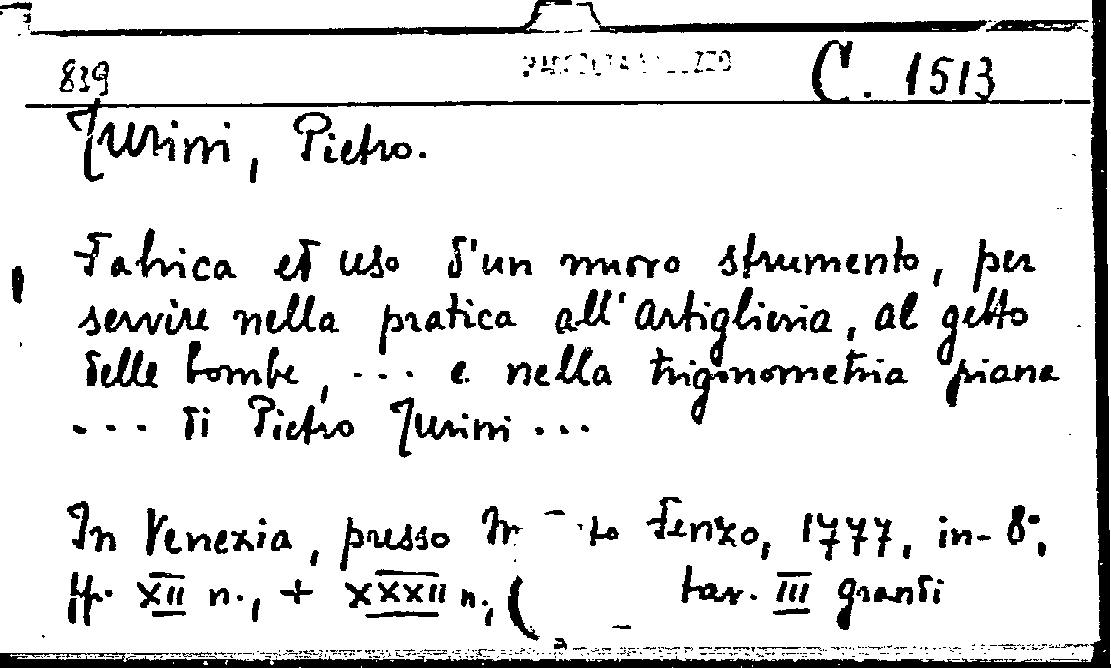 839 C. 1513
Turini, Pietro.
Fabrica ed uso d'un nuovo strumento, per
servire nella pratica all'Artiglieria, al getto
delle bombe, ... e nella trigonometria piana
... di Pietro Turini ...
In Venezia, presso Fenzo, 1777, in-8°,
pp. XII n., + XXXII n., ( tav. III grandi